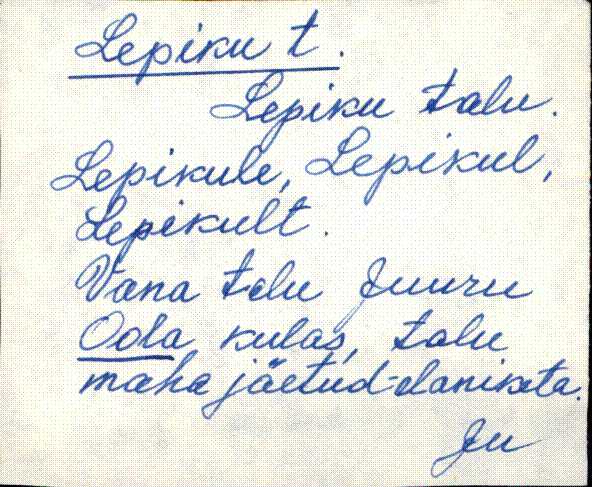 Lepiku t.
Lepiku talu.
Lepikule, Lepikul,
Lepikult.
Vana talu Juuru
Oola kulas, talu
maha jäetud-elaniketa.
Ju